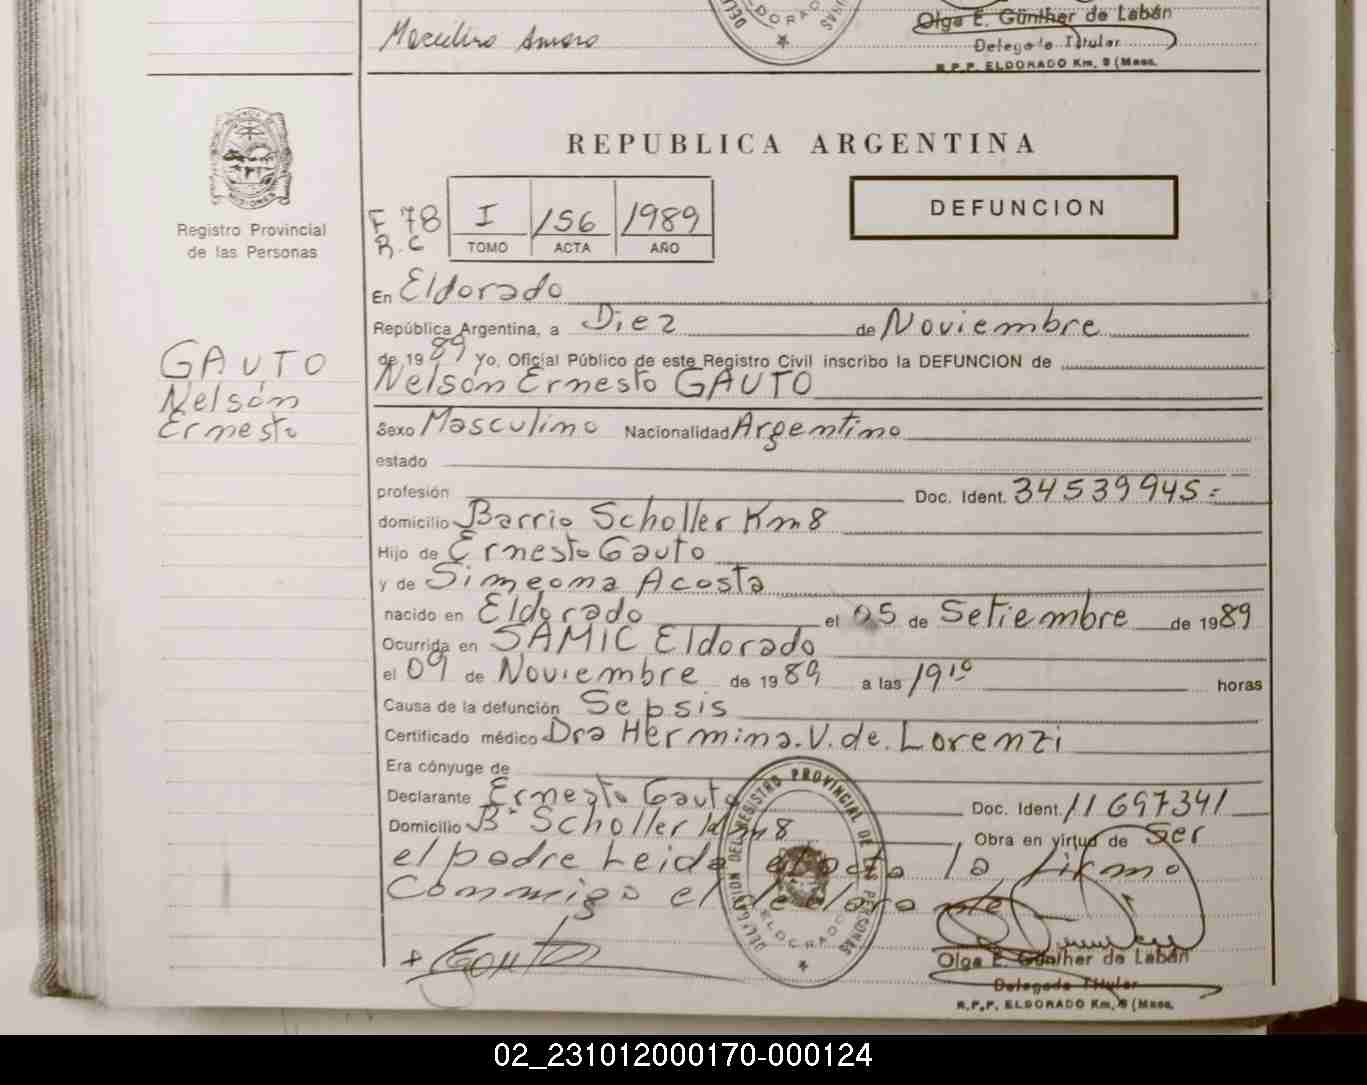 Marcelino Amaro
ELDORADO
Olga E. Günther de Labán
Delegada Titular
R.P.P. ELDORADO Km. 9 (Mnes.
REPUBLICA ARGENTINA
Registro Provincial
de las Personas
F 78
R.C
I 156 1989
TOMO ACTA AÑO
DEFUNCION
En Eldorado
República Argentina, a Diez de Noviembre
de 1989 Yo, Oficial Público de este Registro Civil inscribo la DEFUNCION de
GAUTO
Nelsón
Ernesto
Nelsón Ernesto GAUTO
Sexo Masculino Nacionalidad Argentino
estado
profesión Doc. Ident. 34539945=
domicilio Barrio Scholler Km 8
Hijo de Ernesto Gauto
y de Simeona Acosta
nacido en Eldorado el 05 de Setiembre de 1989
Ocurrida en SAMIC Eldorado
el 09 de Noviembre de 1989 a las 19 10 horas
Causa de la defunción Sepsis
Certificado médico Dra Hermina. V. de. Lorenzi
Era cónyuge de
Declarante Ernesto Gauto Doc. Ident. 11697341
Domicilio Bº Scholler Km 8 Obra en virtud de Ser
el padre Leida el acta la firmo
Conmigo el declarante
DELEGACION DEL REGISTRO PROVINCIAL DE LAS PERSONAS
ELDORADO
+ Gauto
Olga E. Günther de Labán
Delegada Titular
R.P.P. ELDORADO Km. 9 (Mnes.
02_231012000170-000124